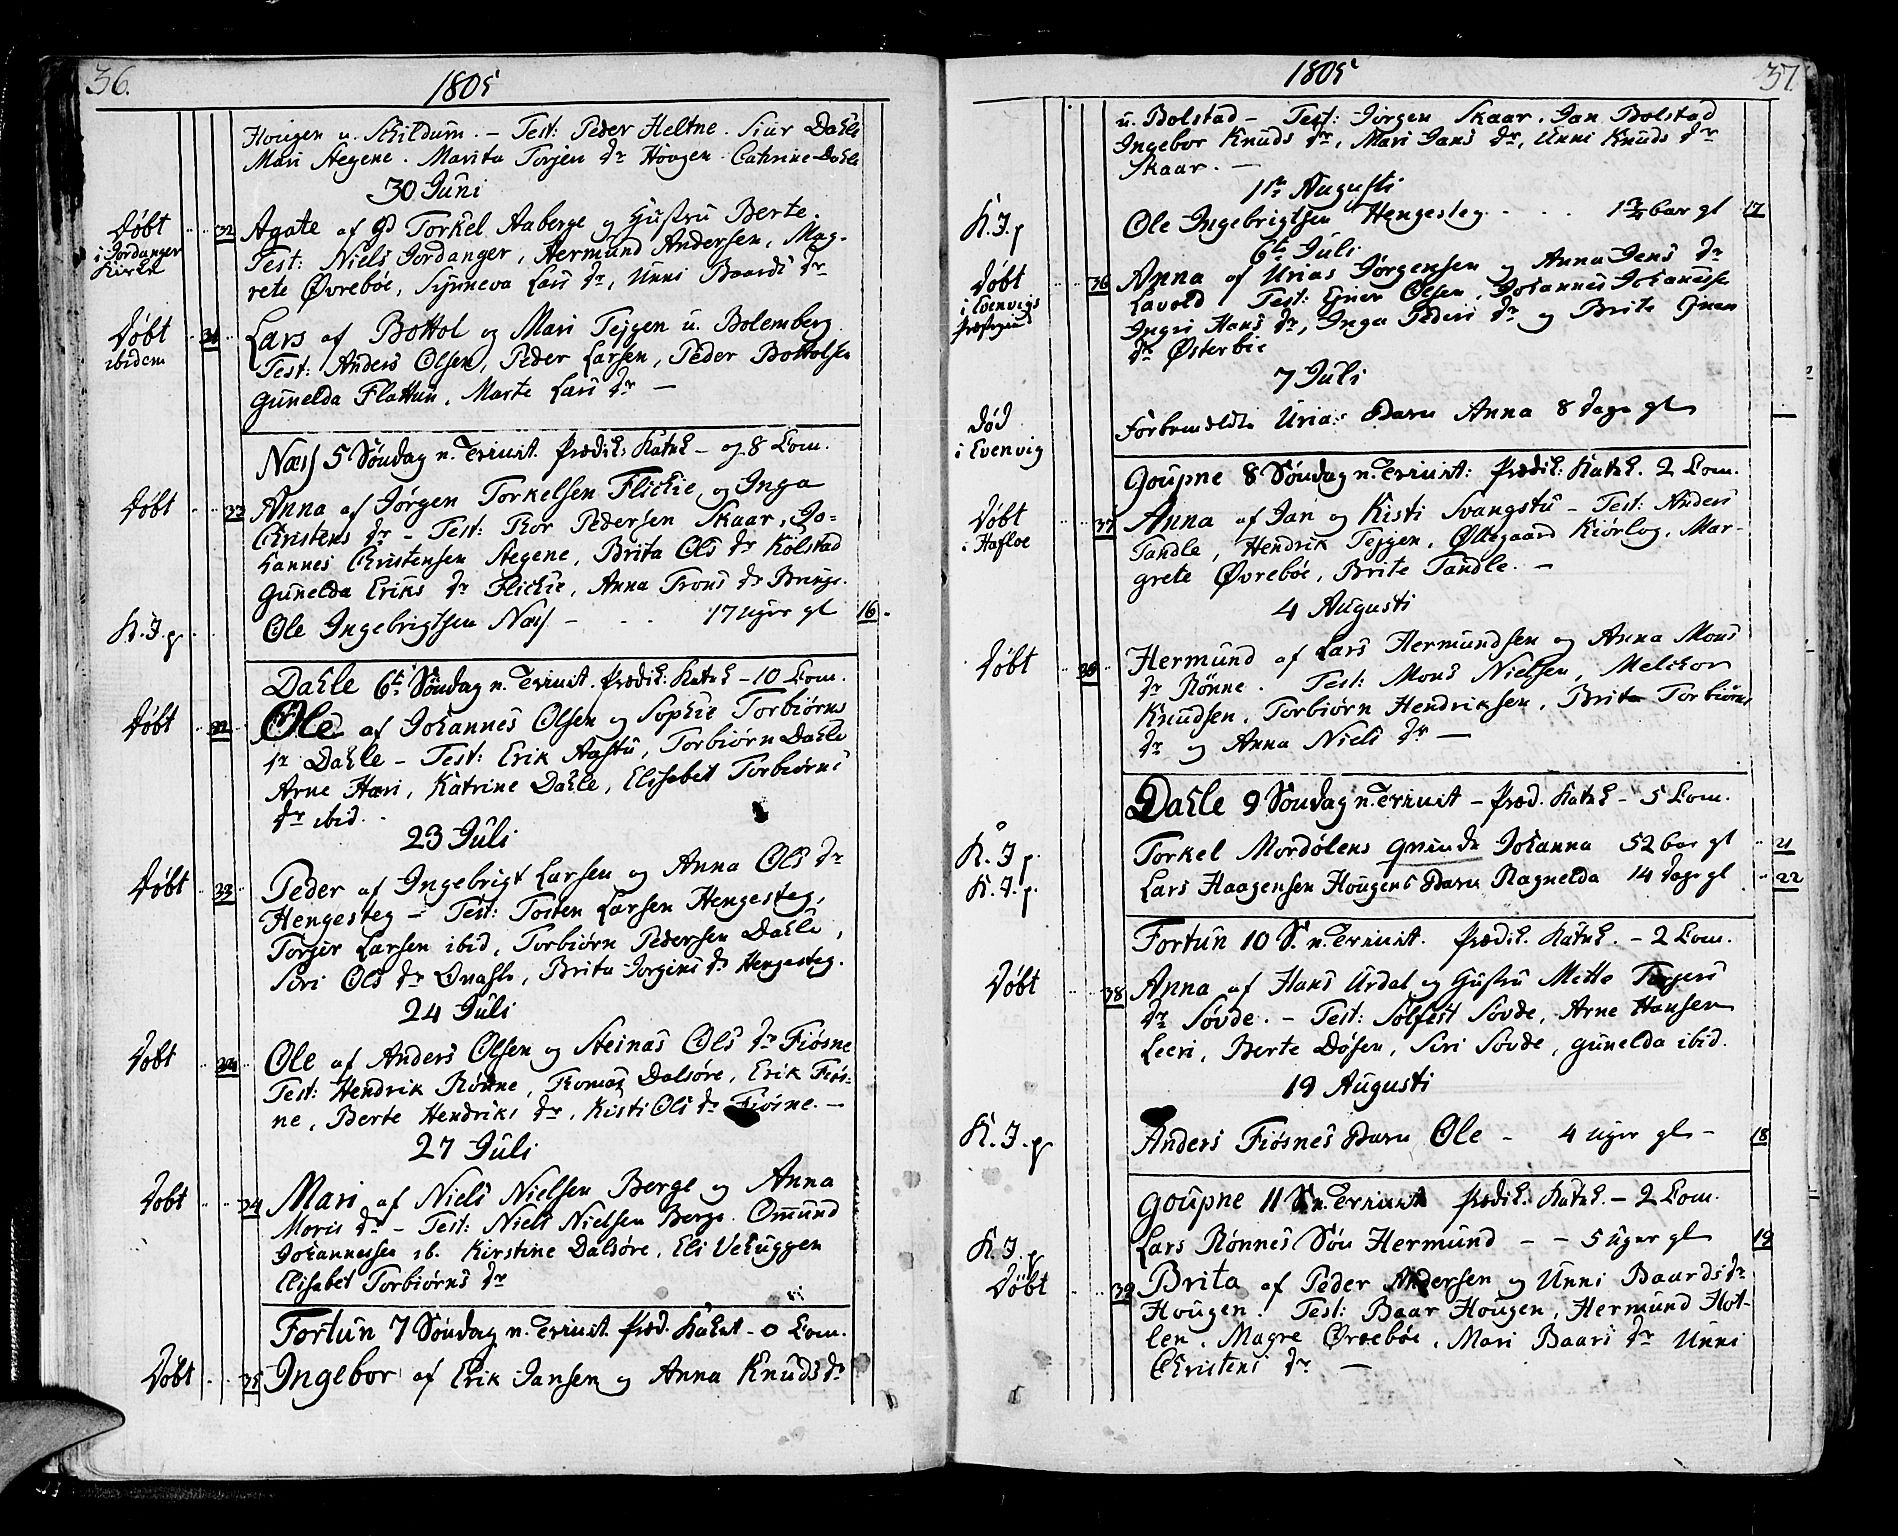 36.
1805
Hougen u. Skildum. – Test: Peder Heltne. Siur Dahle
Mari Stegene. Marita Torjen dr Hougen. Cathrine Dahle
30 Juni
Døbt i Jordanger Kirke 32 Agate af gd Torkel Aaberge og Hustru Berte.
Test: Niels Jordanger, Hermund Andersen, Mag-
rete Øvrebøe, Synneva Lars dr, Unni Baards dr
Døbt ibidem 31 Lars af Bottol og Mari Tejgen u. Bolemberg
Test: Anders Olsen, Peder Larsen, Peder Bottolsen
Gunelda Flattun, Marte Lars dr –
Næss 5 Søndag n. Trinit. Prædik: Katek – og 8 Com.
Døbt 33 Anna af Jørgen Torkelsen Flickie og Inga
Christens dr – Test: Thor Pedersen Skaar, Jo-
hannes Christensen Stegene, Brita Ols dr Kolstad
Gunelda Eriks dr Flickie, Anna Trons dr
K. J. p Ole Ingebrigtsen Næss – . . 17 uger gl 16
Dahle 6te Søndag n. Trinit. Prædik: Katek – 10 Com.
Døbt 32 Ole af Johannes Olsen og Sophie Torbiørns
dr Dahle – Test: Erik Aastu, Torbiørn Dahle
Arne Hæri, Katrine Dahle, Elisabet Torbiørns
dr ibid.
23 Juli
Døbt 33 Peder af Ingebrigt Larsen og Anna Ols dr
Hengesteg – Test: Tosten Larsen Hengesteg,
Torger Larsen ibid, Torbiørn Pedersen Dahle,
Siri Ols dr, Brita Jorgins dr Hengesteg.
24 Juli
Døbt 34 Ole af Anders Olsen og Steinas Ols dr Fiøsne
Test: Hendrik Rønne, Thomas Dalsøre, Erik Fiøs-
ne, Berte Hendriks dr, Kisti Ols dr Fiøsne. –
27 Juli
Døbt 34 Mari af Niels Nielsen Berge og Anna
Moris dr – Test: Niels Nielsen Berge. Omund
Johannessen ib. Kirstine Dalsøre, Eli Vehuggen
Elisabet Torbiørns dr
Fortun 7 Søndag n. Trinit. Præd. Katek – 0 Com.
Døbt 35 Ingebor af Erik Jansen og Anna Knuds dr
37.
1805
u. Bolstad – Test: Jørgen Skaar. Jan Bolstad
Ingebor Knuds dr, Mari Jans dr, Unni Knuds dr
Skaar. –
Augusti
K. J. p Ole Ingebrigtsen Hengesteg . . . gl 17
6te Juli
Døbt i Evenvigs Præstegield 36 Anna af Urias Jørgensen og Anna Jens dr
Lavold Test: Einer Olsen, Johannes Johanesen
Ingri Hans dr, Inga Peders dr og Brite
dr Østerbie
7 Juli
Død i Evenvig Forbemeldte Urias Barn Anna 8 dage gl
Goupne 8 Søndag n. Trinit: Prædik: Katek. 2 Com.
Døbt i Hafloe 37 Anna af Jan og Kisti Svangstu – Test: Anders
Tandle, Hendrik Tejgen, Øllegaard Kiørlog, Mar-
grete Øvrebøe, Brite Tandle. –
4 Augusti
Døbt Hermund af Lars Hermundsen og Anna Mons
dr Rønne. Test: Mons Nielsen, Melchor
Knudsen, Torbiørn Hendriksen, Brita Torbiørns
dr og Anna Niels dr –
Dahle 9 Søndag n. Trinit – Præd. Katek – 5 Com.
K. J. p. Torkel Mordølens Qvinde Johanna 52 aar gl 21
K. J. p. Lars Haagensen Hougens Barn Ragnelda 14 dage gl 22
Fortun 10 S. n. Trinit. Prædik. Katek. – 2 Com.
Døbt 38 Anna af Hans Urdal og Hustru Mette Torgers
dr Søvde. – Test: Solfest Søvde, Arne Hansen
Leeri, Berte Døsen, Siri Søvde, Gunelda ibid.
19 Augusti
K. J. p Anders Fiøsnes Barn Ole – 4 uger gl – 18
Goupne 11 S n. Trinit Prædik: Katek. – 2 Com.
K. J. p Lars Rønnes Søn Hermund – – 5 uger gl 19
Døbt 39 Brita af Peder Andersen og Unni Baards dr
Hougen. Test: Baar Hougen, Hermund Hot-
len, Magre Ørrebøe, Mari Baars dr Unni
Christens dr –